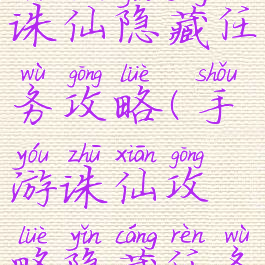 诛仙隐藏任
wù gōng lüè shǒu
务攻略(手
yóu zhū xiān gōng
游诛仙攻
lüè yǐn cáng rèn wù
略隐藏任务